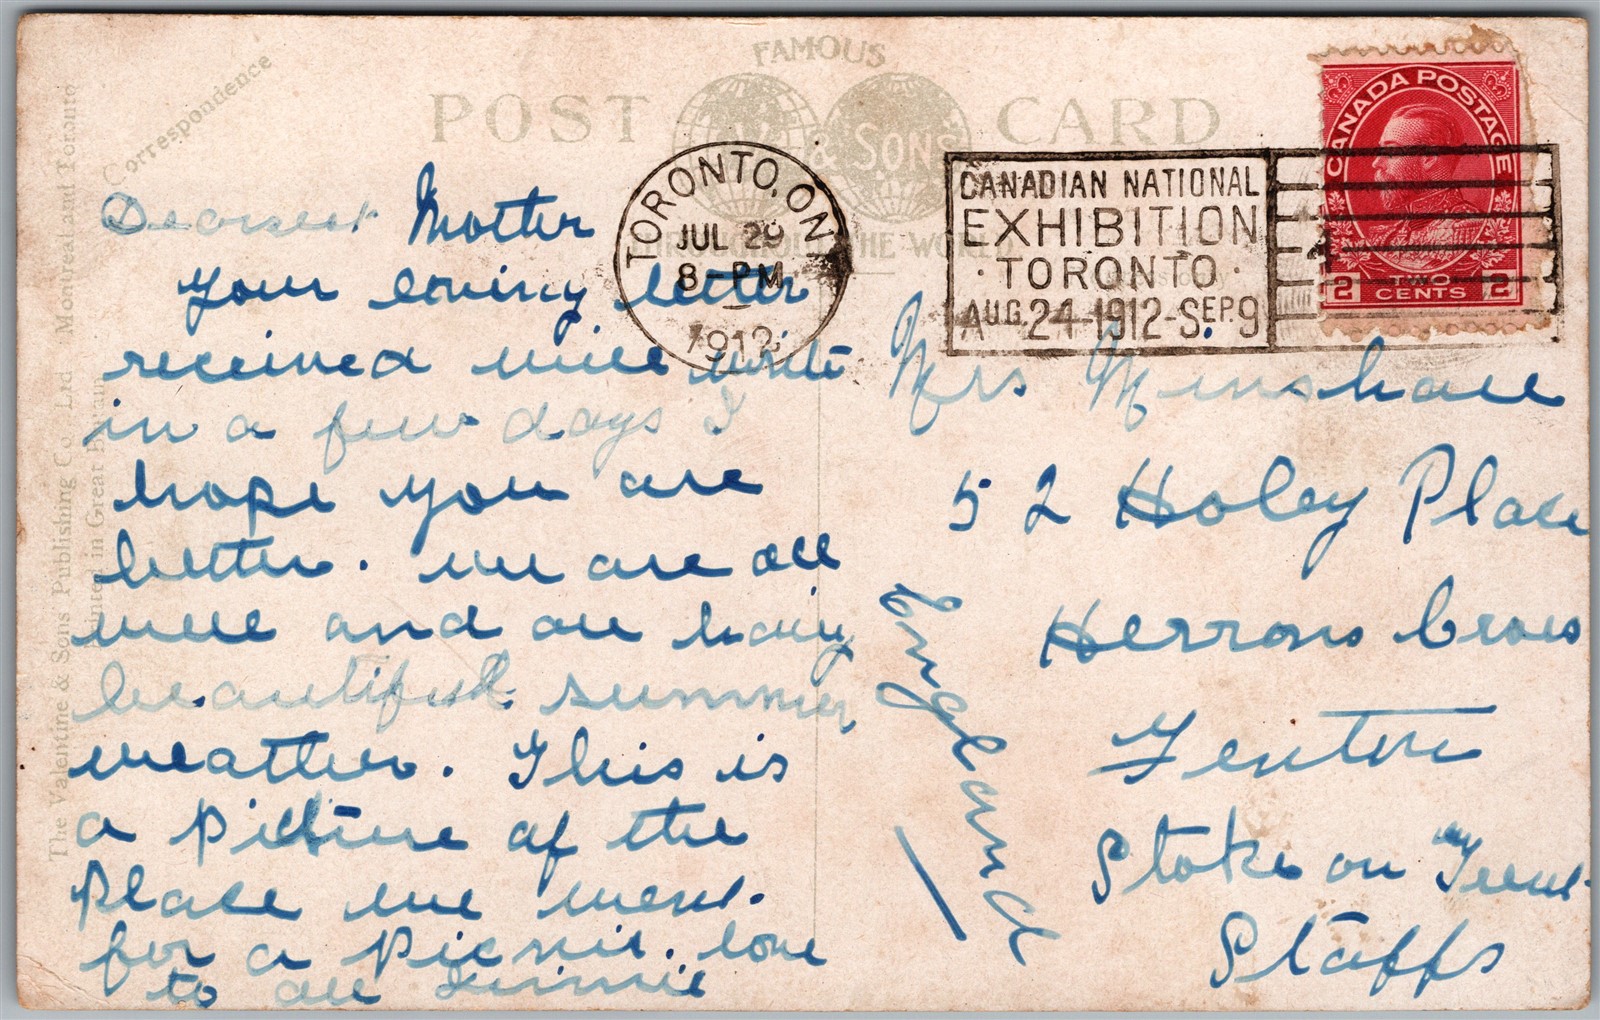 FAMOUS
POST CARD
& SONS
THROUGHOUT THE WORLD
Correspondence
The Valentine & Sons' Publishing Co. Ltd. Montreal and Toronto
Printed in Great Britain
TORONTO, ONT
JUL 29
8-PM
1912
CANADIAN NATIONAL
EXHIBITION
· TORONTO ·
AUG. 24-1912-SEP. 9
CANADA POSTAGE
2 TWO CENTS 2
Dearest Mother
Your loving letter
received will write
in a few days I
hope you are
better. we are all
well and are having
beautiful summer
weather. This is
a picture of the
place we went.
for a Picnic. love
to all
Mrs Minshall
52 Holey Place
Herrons Cross
Fenton
Stoke on Trent.
Staffs
England